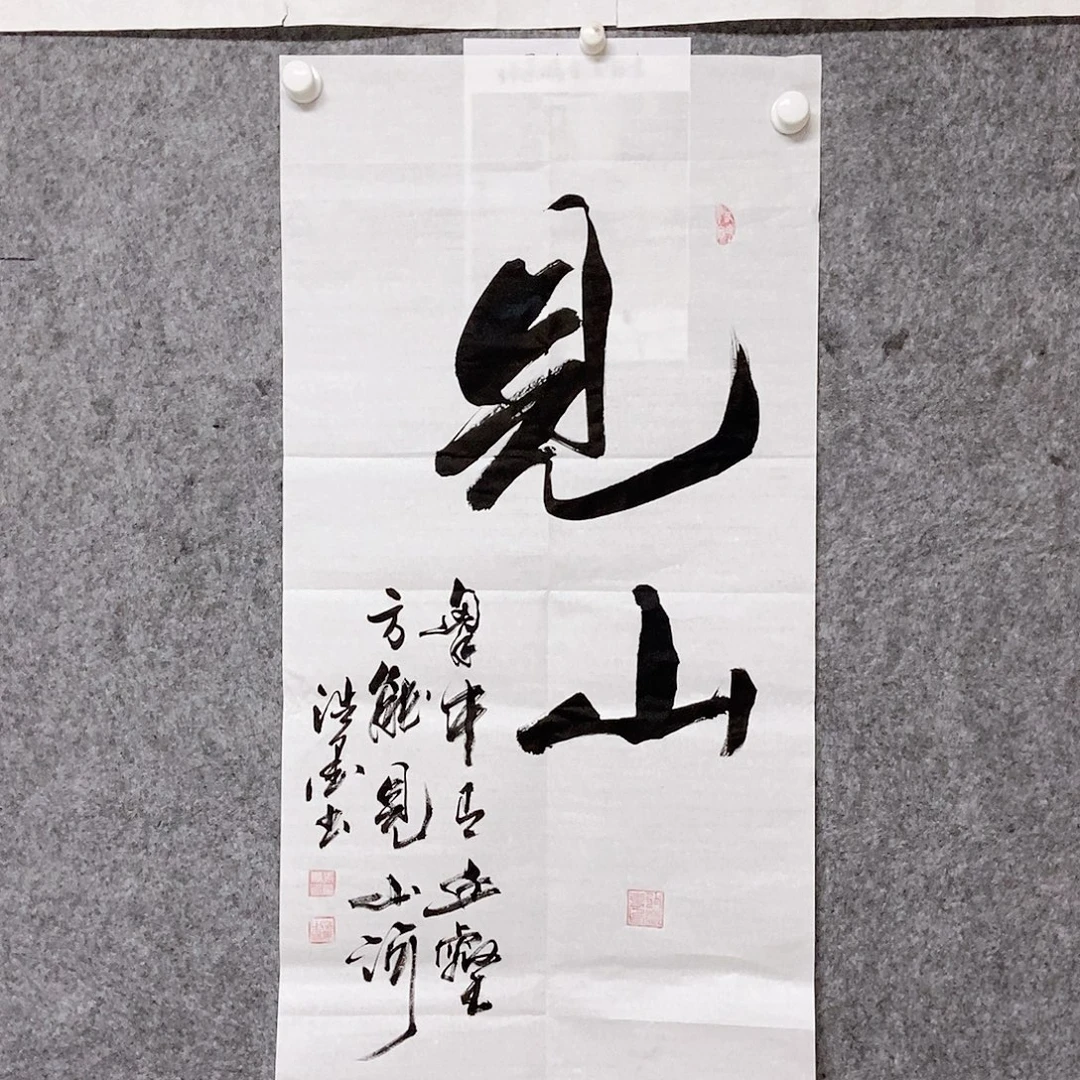 見山
胸中有丘壑
方能見山河
浩墨书